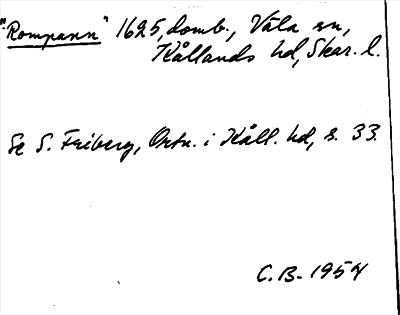 "Rompann" 1695, domb., Väla sn,
Kållands hd, Skar. l.
Se S. Friberg, Ortn. i Kåll. hd, s. 33.
C. B. 1954